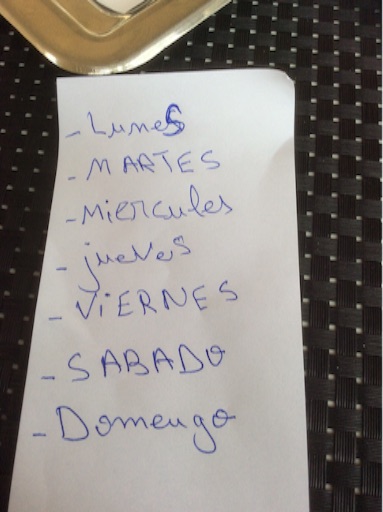 - LuneS
- MARTES
- Miercules
- jueves
- ViERNES
- SABADO
- Domengo